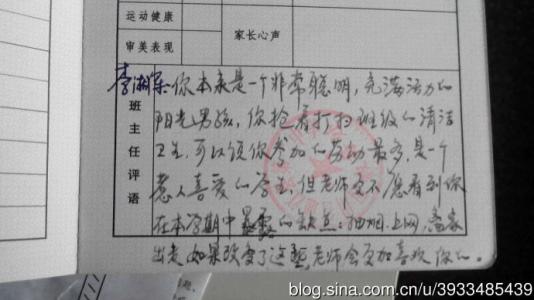 运动健康
审美表现
家长心声
班主任评语
你本来是一个非常聪明，充满活力的
阳光男孩，你抢着打扫班级的清洁
卫生，可以说你参加的劳动最多，是一个
惹人喜爱的学生，但老师实不愿看到你
在本学期中暴露的缺点：抽烟、上网、离家
出走，如果改变了这些，老师会更加喜欢你的。
blog.sina.com.cn/u/3933485439